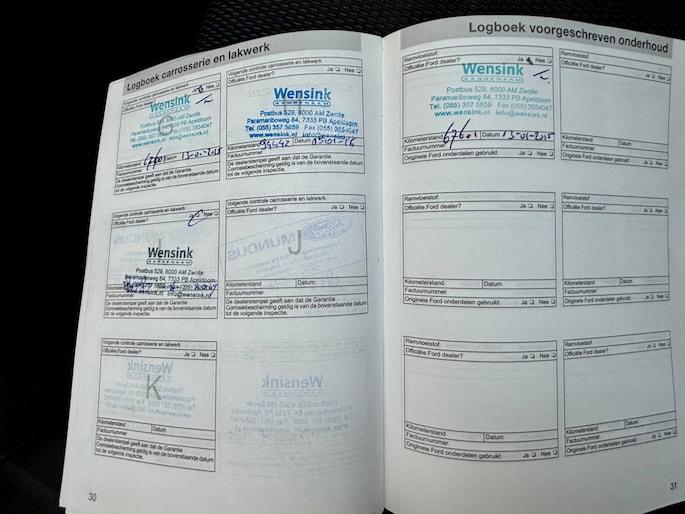 Logboek carrosserie en lakwerk
Volgende controle carrosserie en lakwerk
Officiële Ford dealer? Ja Nee
Wensink
AANGENAAM
Postbus 529, 8000 AM Zwolle
Paramariboweg 64, 7333 PB Apeldoorn
Tel. (055) 357 5859 Fax (055) 3554047
www.wensink.nl info@wensink.nl
Kilometerstand 67601 Datum 13-01-2015
Factuurnummer
De dealerstempel geeft aan dat de Garantie
Corrosiebescherming geldig is van bovenstaande datum
tot de volgende inspectie.
Volgende controle carrosserie en lakwerk
Officiële Ford dealer? Ja Nee
Wensink
AANGENAAM
Postbus 529, 8000 AM Zwolle
Paramariboweg 64, 7333 PB Apeldoorn
Tel. (055) 357 5859 Fax (055) 3554047
www.wensink.nl info@wensink.nl
Kilometerstand 94442 Datum
Factuurnummer
De dealerstempel geeft aan dat de Garantie
Corrosiebescherming geldig is van de bovenstaande datum
tot de volgende inspectie.
Volgende controle carrosserie en lakwerk
Officiële Ford dealer? Ja Nee
Wensink
AANGENAAM
Postbus 529, 8000 AM Zwolle
Paramariboweg 64, 7333 PB Apeldoorn
www.wensink.nl info@wensink.nl
Factuurnummer
De dealerstempel geeft aan dat de Garantie
Corrosiebescherming geldig is van de bovenstaande datum
tot de volgende inspectie.
Volgende controle carrosserie en lakwerk
Officiële Ford dealer? Ja Nee
J
Kilometerstand Datum
Factuurnummer
De dealerstempel geeft aan dat de Garantie
Corrosiebescherming geldig is van de bovenstaande datum
tot de volgende inspectie.
Volgende controle carrosserie en lakwerk
Officiële Ford dealer? Ja Nee
K
Kilometerstand Datum
Factuurnummer
De dealerstempel geeft aan dat de Garantie
Corrosiebescherming geldig is van de bovenstaande datum
tot de volgende inspectie.
30
Logboek voorgeschreven onderhoud
Remvloeistof
Officiële Ford dealer? Ja Nee
Wensink
AANGENAAM
Postbus 529, 8000 AM Zwolle
Paramariboweg 64, 7333 PB Apeldoorn
Tel. (055) 357 5859 Fax (055) 3554047
www.wensink.nl info@wensink.nl
Kilometerstand 67601 Datum 13-01-2015
Factuurnummer
Originele Ford onderdelen gebruikt? Ja Nee
Remvloeistof
Officiële Ford dealer? Ja Nee
Kilometerstand Datum
Factuurnummer
Originele Ford onderdelen gebruikt Ja Nee
Remvloeistof
Officiële Ford dealer? Ja Nee
Kilometerstand Datum
Factuurnummer
Originele Ford onderdelen gebruikt Ja Nee
Remvloeistof
Officiële Ford dealer? Ja Nee
Kilometerstand Datum
Factuurnummer
Originele Ford onderdelen gebruikt Ja Nee
Remvloeistof
Officiële Ford dealer? Ja Nee
Kilometerstand Datum
Factuurnummer
Originele Ford onderdelen gebruikt Ja Nee
Remvloeistof
Officiële Ford dealer? Ja Nee
Kilometerstand Datum
Factuurnummer
Originele Ford onderdelen gebruikt Ja Nee
31